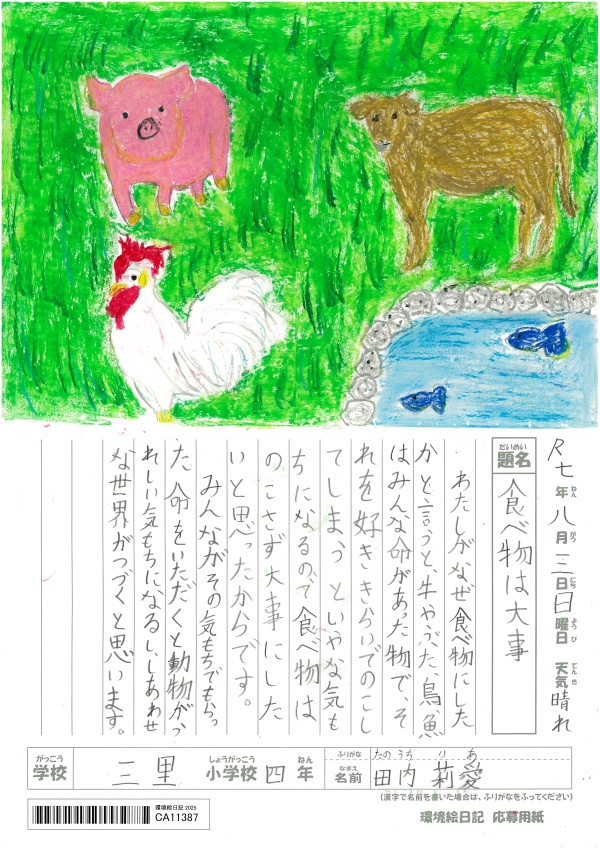 R七年八月三日日曜日 天気晴れ
ねん がつ にち ようび てんき
だいめい
題名 食べ物は大事
わたしがなぜ食べ物にした
かと言うと、牛やぶた、鳥、魚
はみんな命があった物で、そ
れを好ききらいでのこし
てしまうといやな気も
ちになるので食べ物は
のこさず大事にした
いと思ったからです。
みんながその気もちでもらっ
た命をいただくと動物がう
れしい気もちになるし、しあわせ
な世界がつづくと思います。
がっこう しょうがっこう ねん
学校 三里 小学校 四年
ふりがな たのうち りあ
なまえ
名前 田内 莉愛
(漢字で名前を書いた場合は、ふりがなをふってください)
環境絵日記 2025
CA11387
環境絵日記 応募用紙